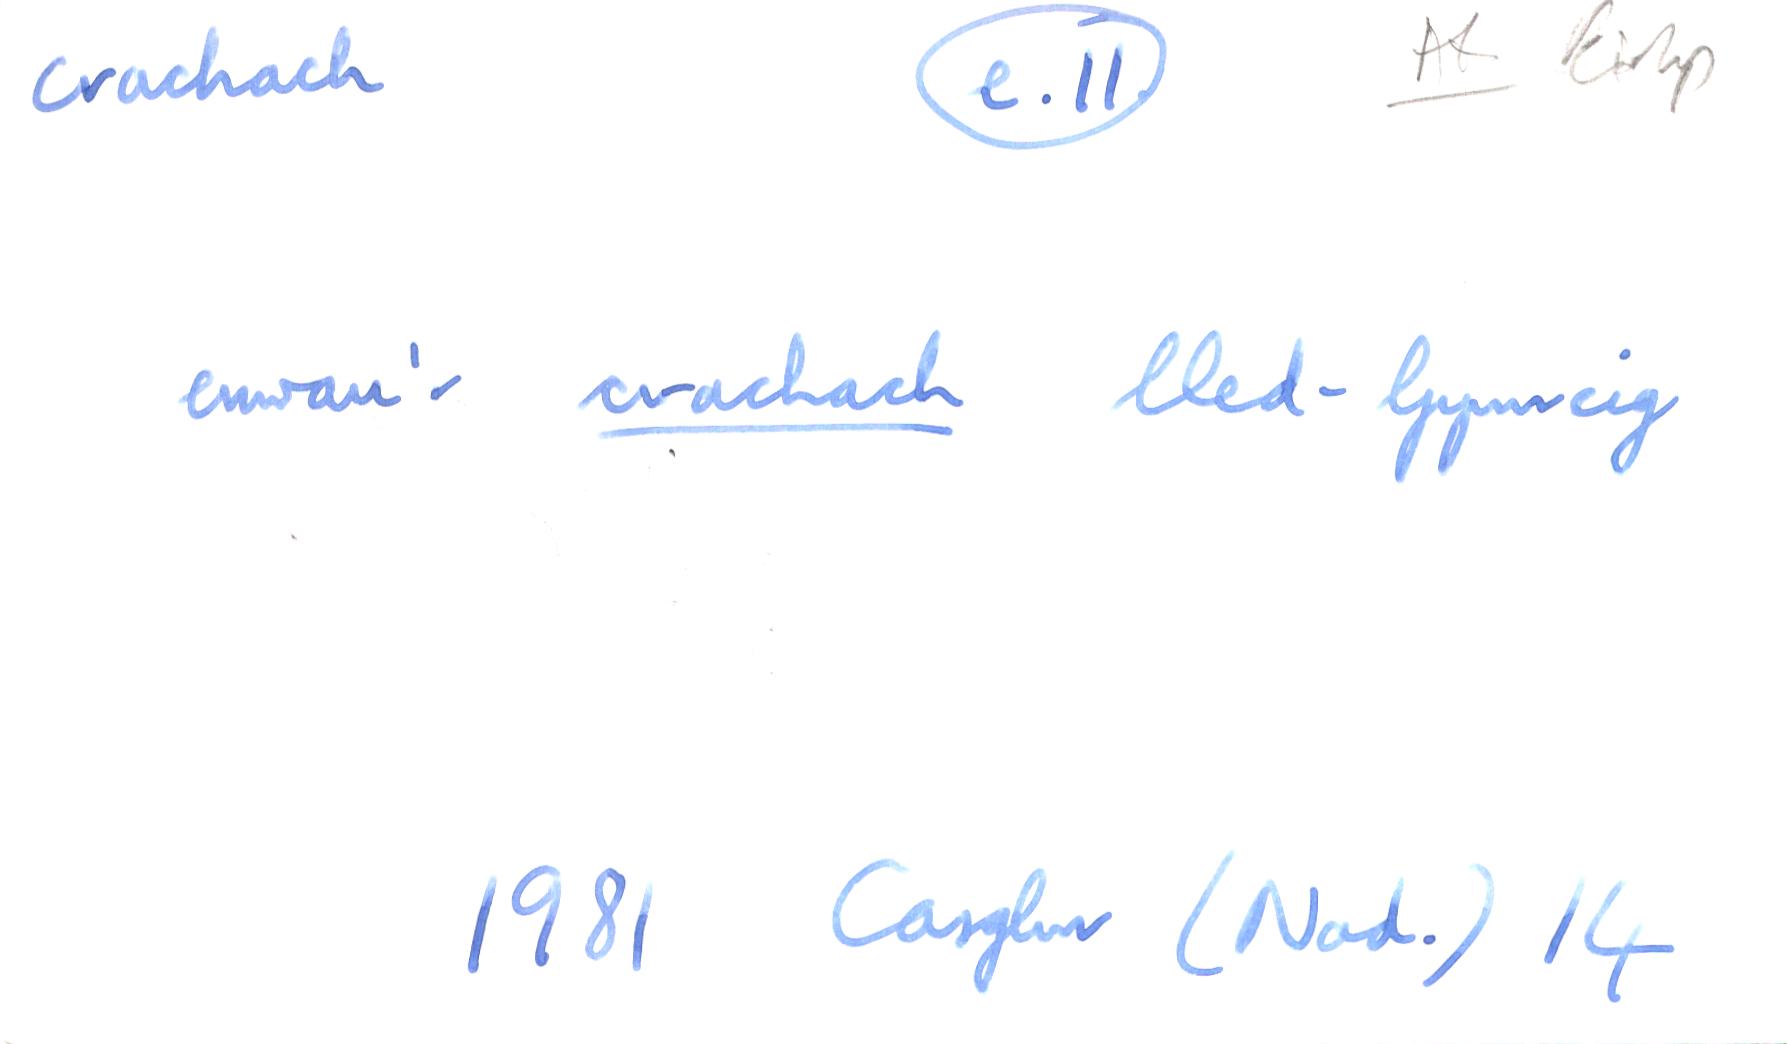 crachach e.ll.
enwau'r crachach lled-Gymreig
1981 Casglwr (Nad.) 14